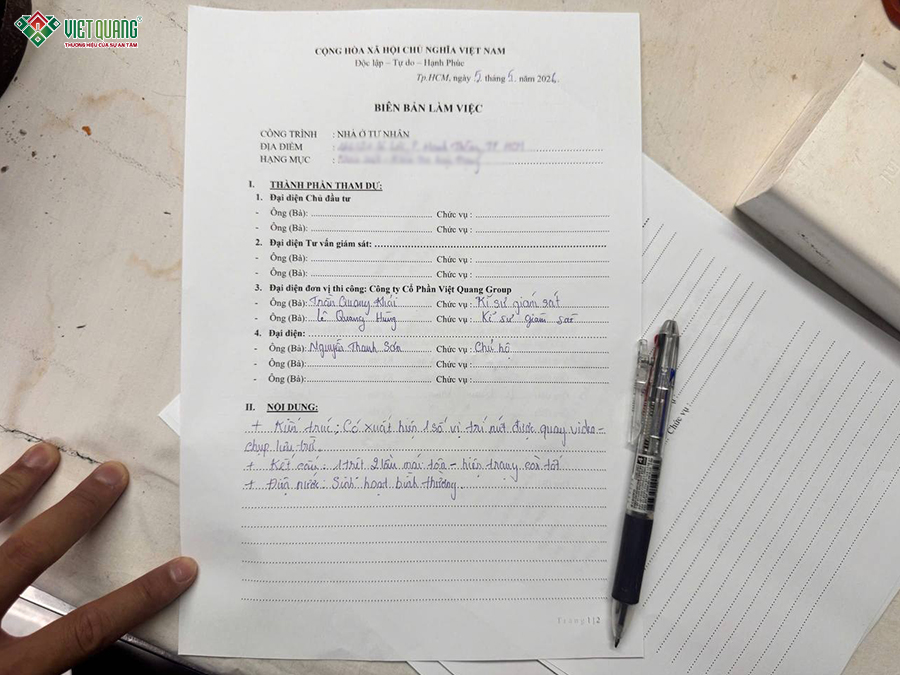 VIỆT QUANG®
THƯƠNG HIỆU CỦA SỰ AN TÂM
CỘNG HÒA XÃ HỘI CHỦ NGHĨA VIỆT NAM
Độc lập – Tự do – Hạnh Phúc
Tp.HCM, ngày 5 tháng 5 năm 2026
BIÊN BẢN LÀM VIỆC
CÔNG TRÌNH : NHÀ Ở TƯ NHÂN
ĐỊA ĐIỂM :
HẠNG MỤC :
I. THÀNH PHẦN THAM DỰ:
1. Đại diện Chủ đầu tư
- Ông (Bà): Chức vụ :
- Ông (Bà): Chức vụ :
2. Đại diện Tư vấn giám sát:
- Ông (Bà): Chức vụ :
- Ông (Bà): Chức vụ :
3. Đại diện đơn vị thi công: Công ty Cổ Phần Việt Quang Group
- Ông (Bà): Trần Quang Khải Chức vụ : Kĩ sư giám sát
- Ông (Bà): Lê Quang Hưng Chức vụ : Kĩ sư giám sát
4. Đại diện:
- Ông (Bà): Nguyễn Thanh Sơn Chức vụ : Chủ hộ
- Ông (Bà): Chức vụ :
- Ông (Bà): Chức vụ :
II. NỘI DUNG:
+ Kiến trúc : Có xuất hiện 1 số vị trí nứt được quay video -
chụp lưu trữ.
+ Kết cấu : 1 trệt 2 lầu mái tôn - hiện trạng còn tốt
+ Điện nước : Sinh hoạt bình thường
Trang 1|2
Chức vụ :